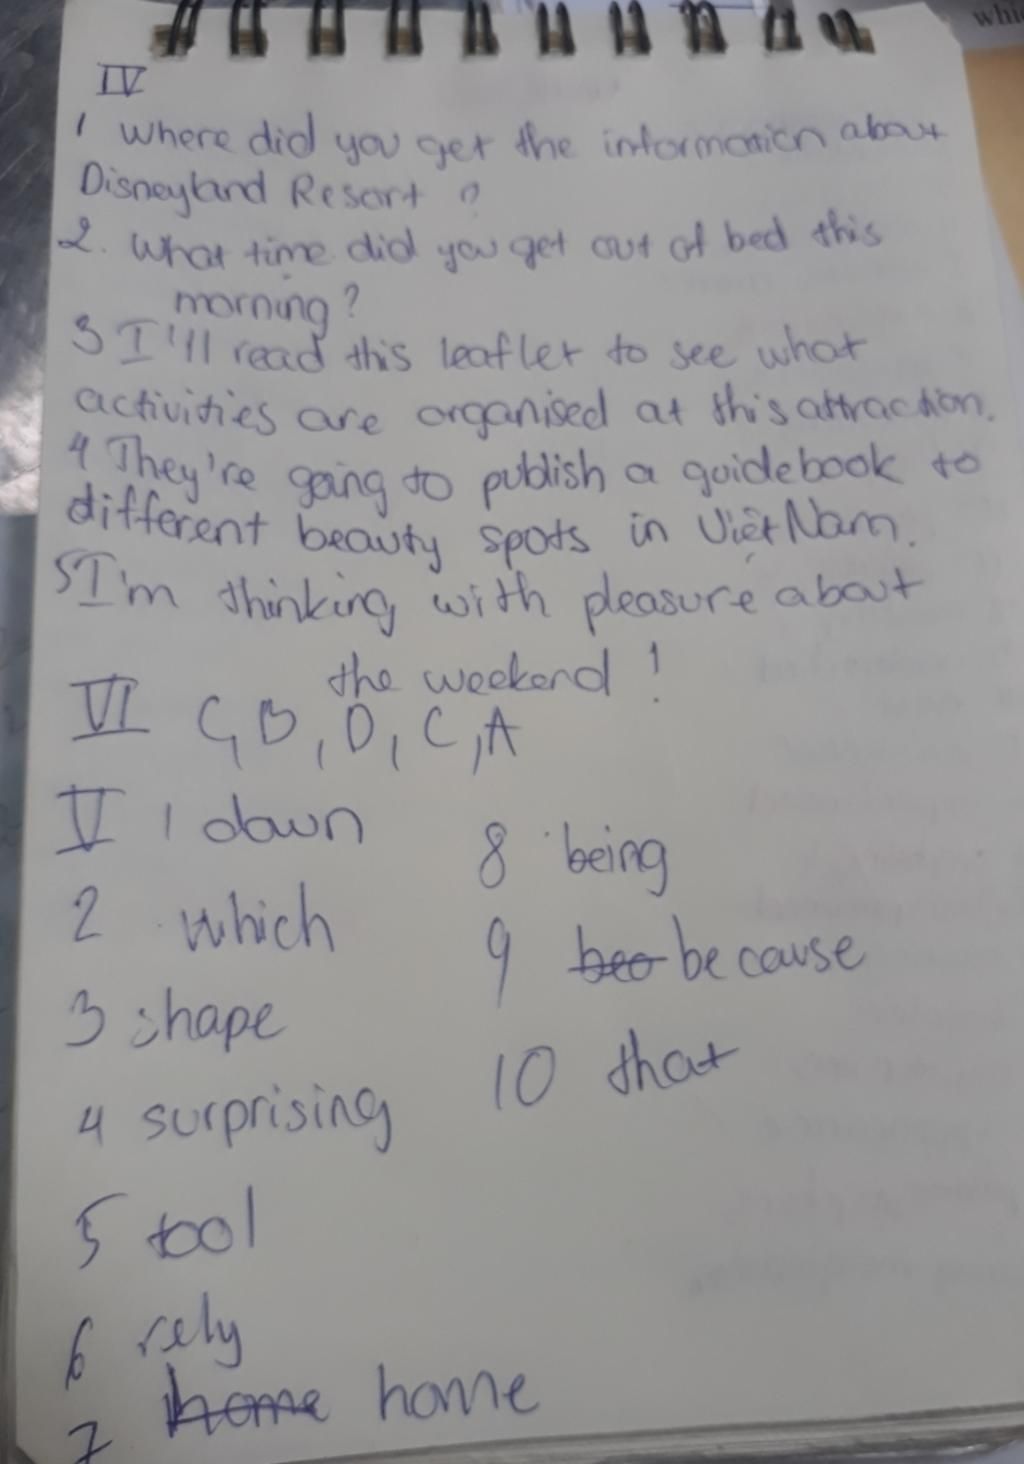 whic
IV
1 Where did you get the information about
Disneyland Resort ?
2. What time did you get out of bed this
morning?
3 I'll read this leaflet to see what
activities are organised at this attraction.
4 They're going to publish a guidebook to
different beauty spots in Việt Nam.
5 I'm thinking with pleasure about
the weekend !
VI C, B, D, C, A
V 1 down
2 which
3 shape
4 surprising
5 tool
6 rely
7 home home
8 being
9 beo because
10 that